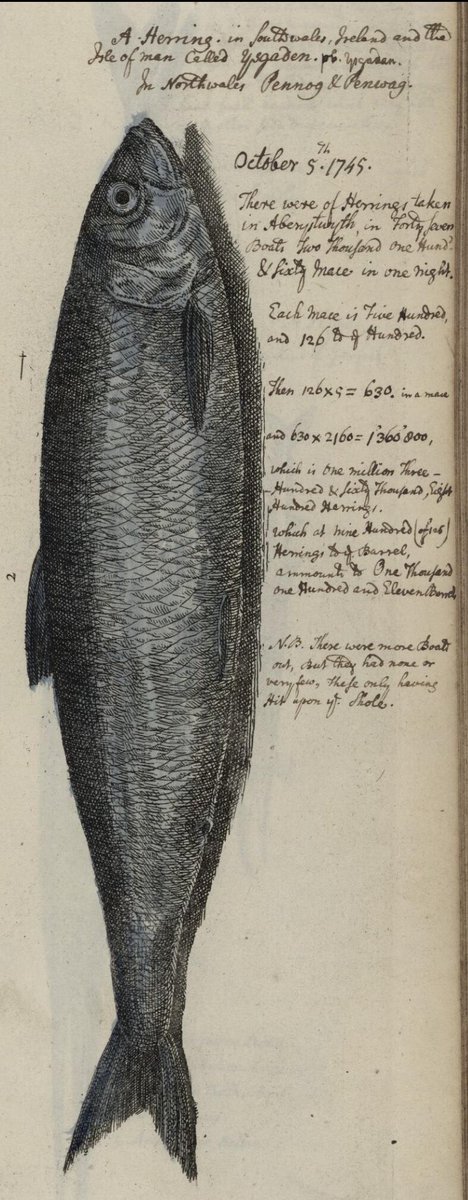 A Herring. in Southwales, Ireland and the
Isle of man Called Ysgaden. pb. ysgaden.
In Northwales Pennog & Penwag.
October 5.th 1745.
There were of Herrings taken
in Aberystwyth, in Forty seven
Boats Two Thousand one Hund.d
& Sixty Mace in one night.
Each mace is Five Hundred,
and 126 to ye Hundred.
Then 126x5 = 630. in a mace
and 630 x 2160 = 1'360'800,
which is One million Three-
Hundred & Sixty Thousand, Eight
Hundred Herrings.
which at nine Hundred (of 126)
Herrings to ye Barrel,
ammounts to One Thousand
one Hundred and Eleven Barrels
N.B. There were more Boats
out, But they had none or
very few, These only having
Hit upon ye Shole.
2